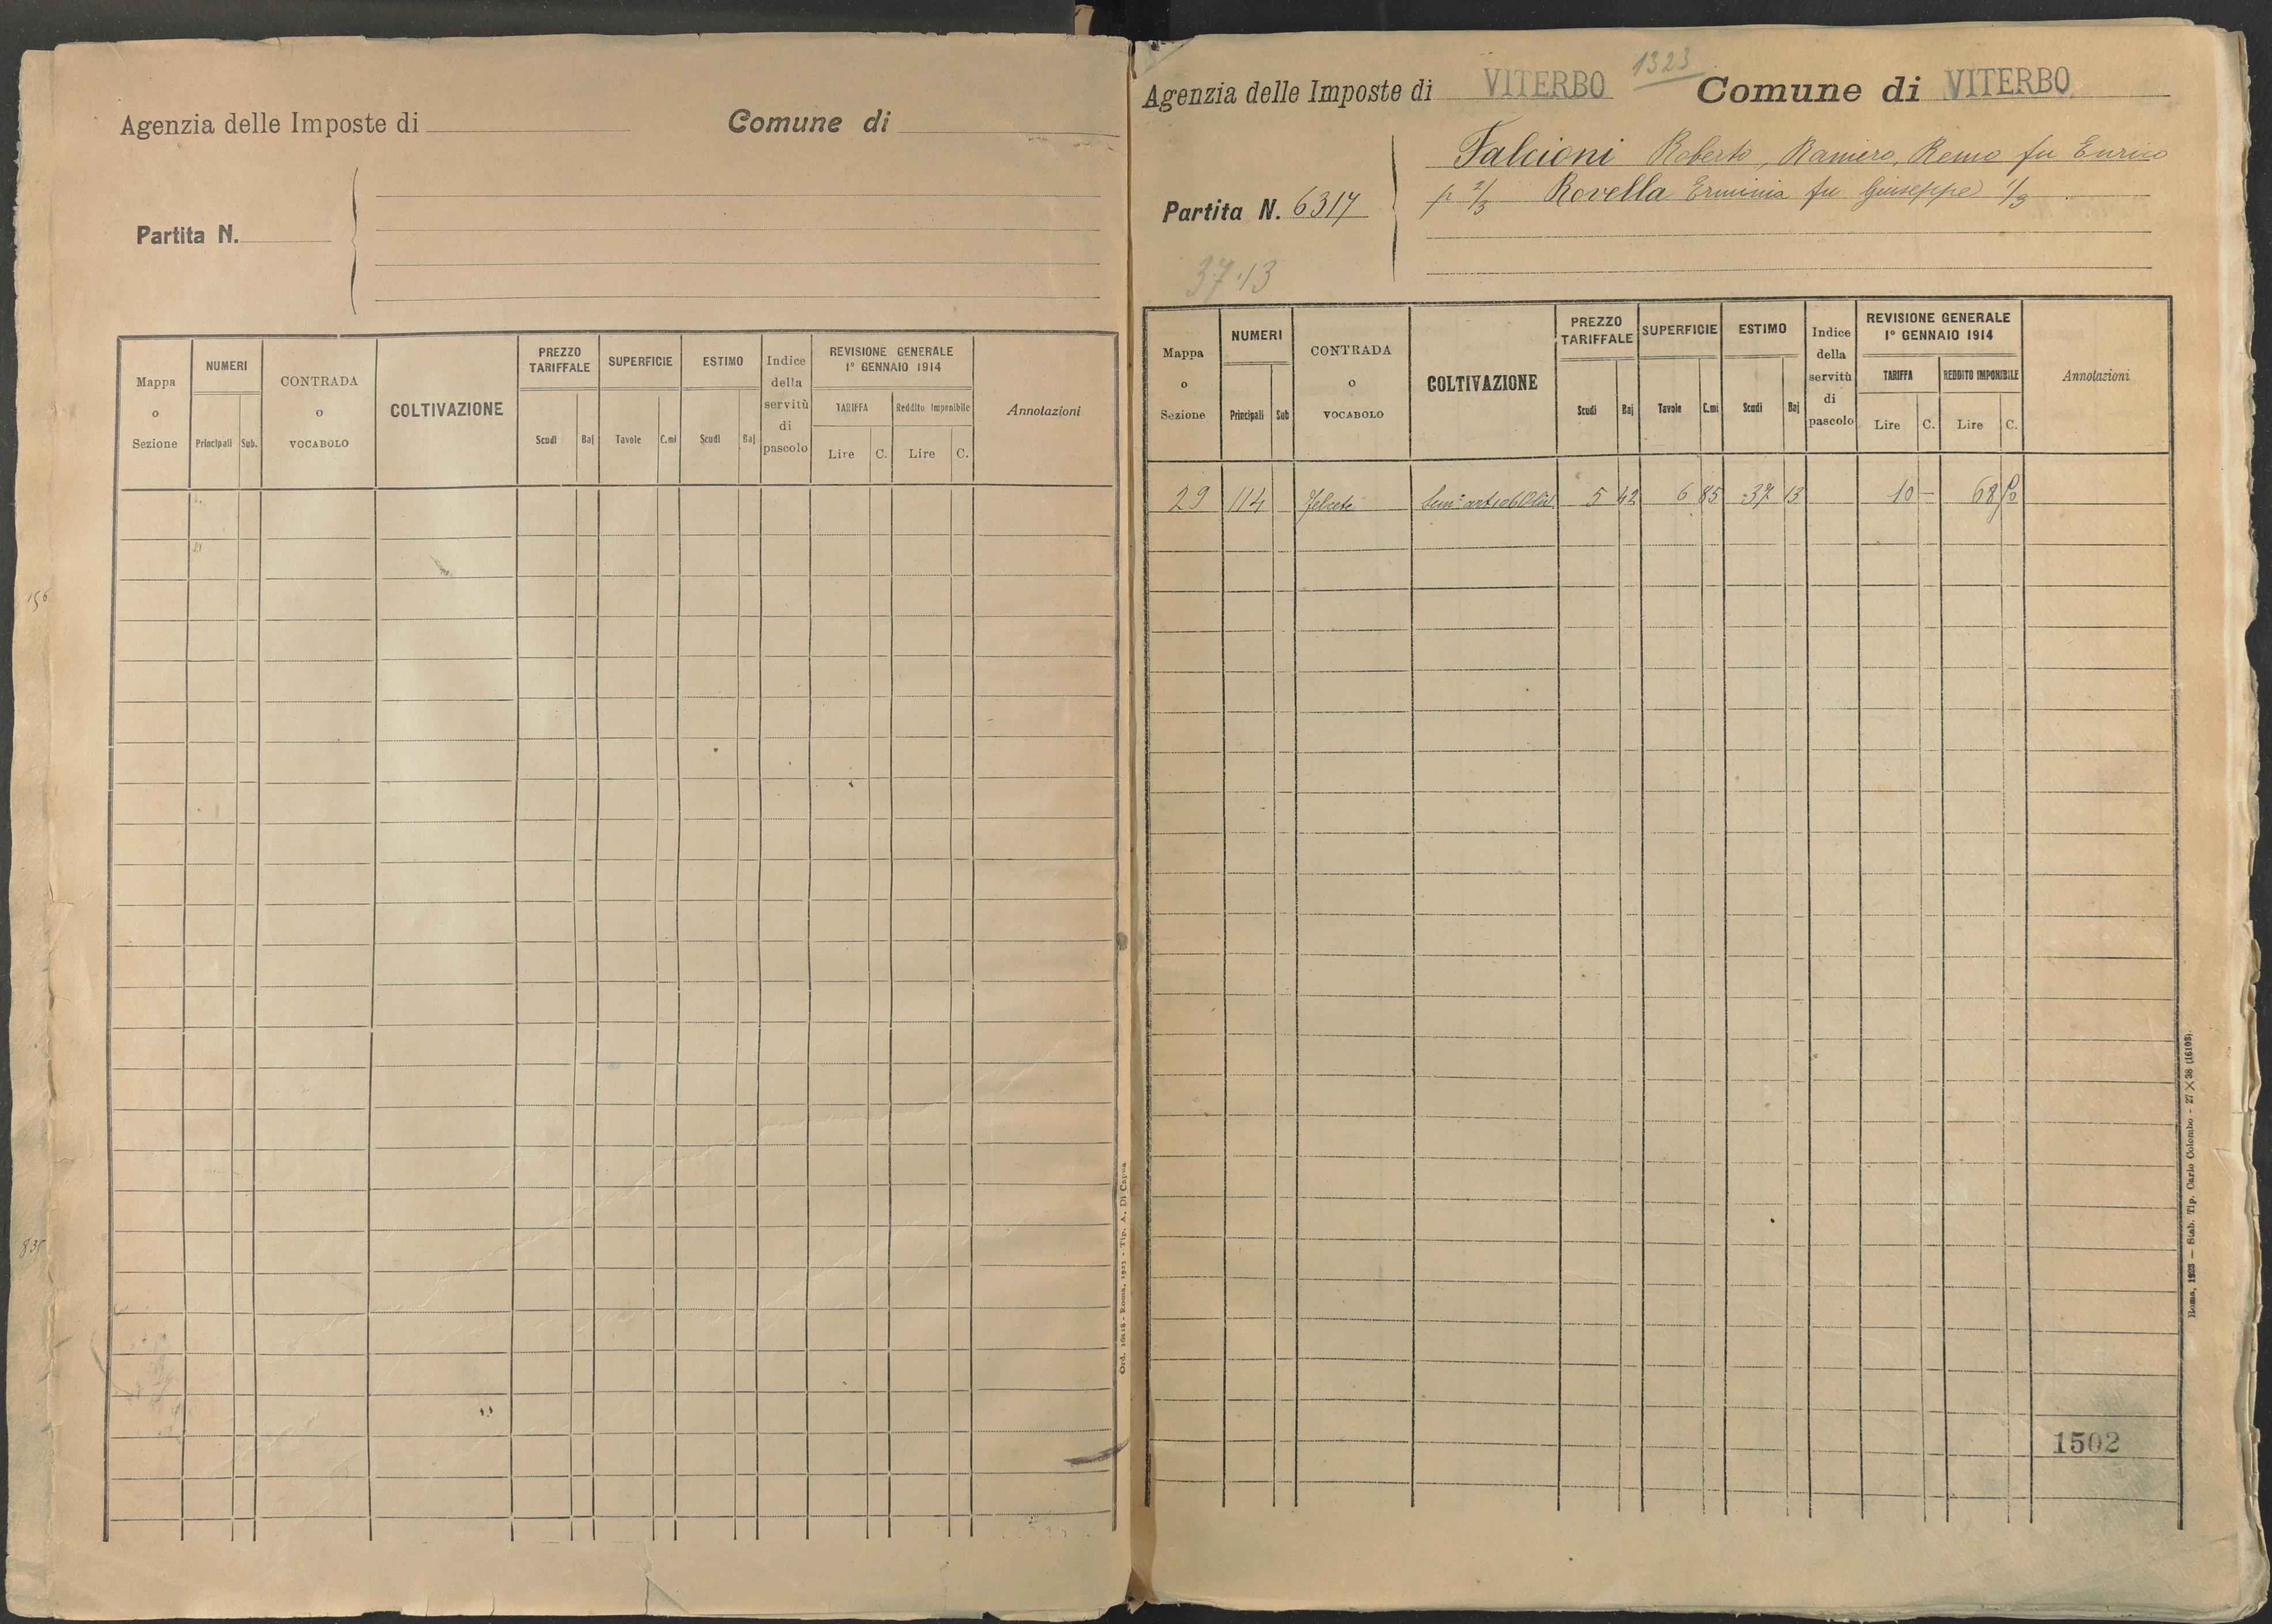 Agenzia delle Imposte di Comune di
Partita N.
Mappa o Sezione NUMERI Principali Sub. CONTRADA o VOCABOLO COLTIVAZIONE PREZZO TARIFFALE Scudi Baj SUPERFICIE Tavole C.mi ESTIMO Scudi Baj Indice della servitù di pascolo REVISIONE GENERALE 1° GENNAIO 1914 TARIFFA Lire C. Reddito Imponibile Lire C. Annotazioni
156
Tip. A. Di Capua
1323
Agenzia delle Imposte di VITERBO Comune di VITERBO
Falcioni Roberto, Raniero, Remo fu Enrico
p 2/3 Rovella Erminia fu Giuseppe 1/3
Partita N. 6317
37.13
Mappa o Sezione NUMERI Principali Sub CONTRADA o VOCABOLO COLTIVAZIONE PREZZO TARIFFALE Scudi Baj SUPERFICIE Tavole C.mi ESTIMO Scudi Baj Indice della servitù di pascolo REVISIONE GENERALE 1° GENNAIO 1914 TARIFFA Lire C. REDDITO IMPONIBILE Lire C. Annotazioni
29 114 5 42 6 85 37 13 10 — 68
1502
Roma, 1923 — Stab. Tip. Carlo Colombo - 27 X 38 (16103).